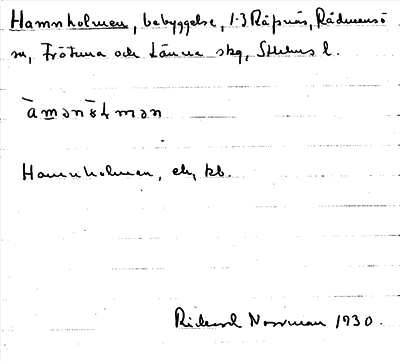 Hamnholmen, bebyggelse, 1-3 Räpnäs, Rådmansö
sn, Frötuna och Länna skg, Sthlms l.
āmənɵ̄łmən
Hamnholmen, ek, kb.
Rickard Norrman 1930.